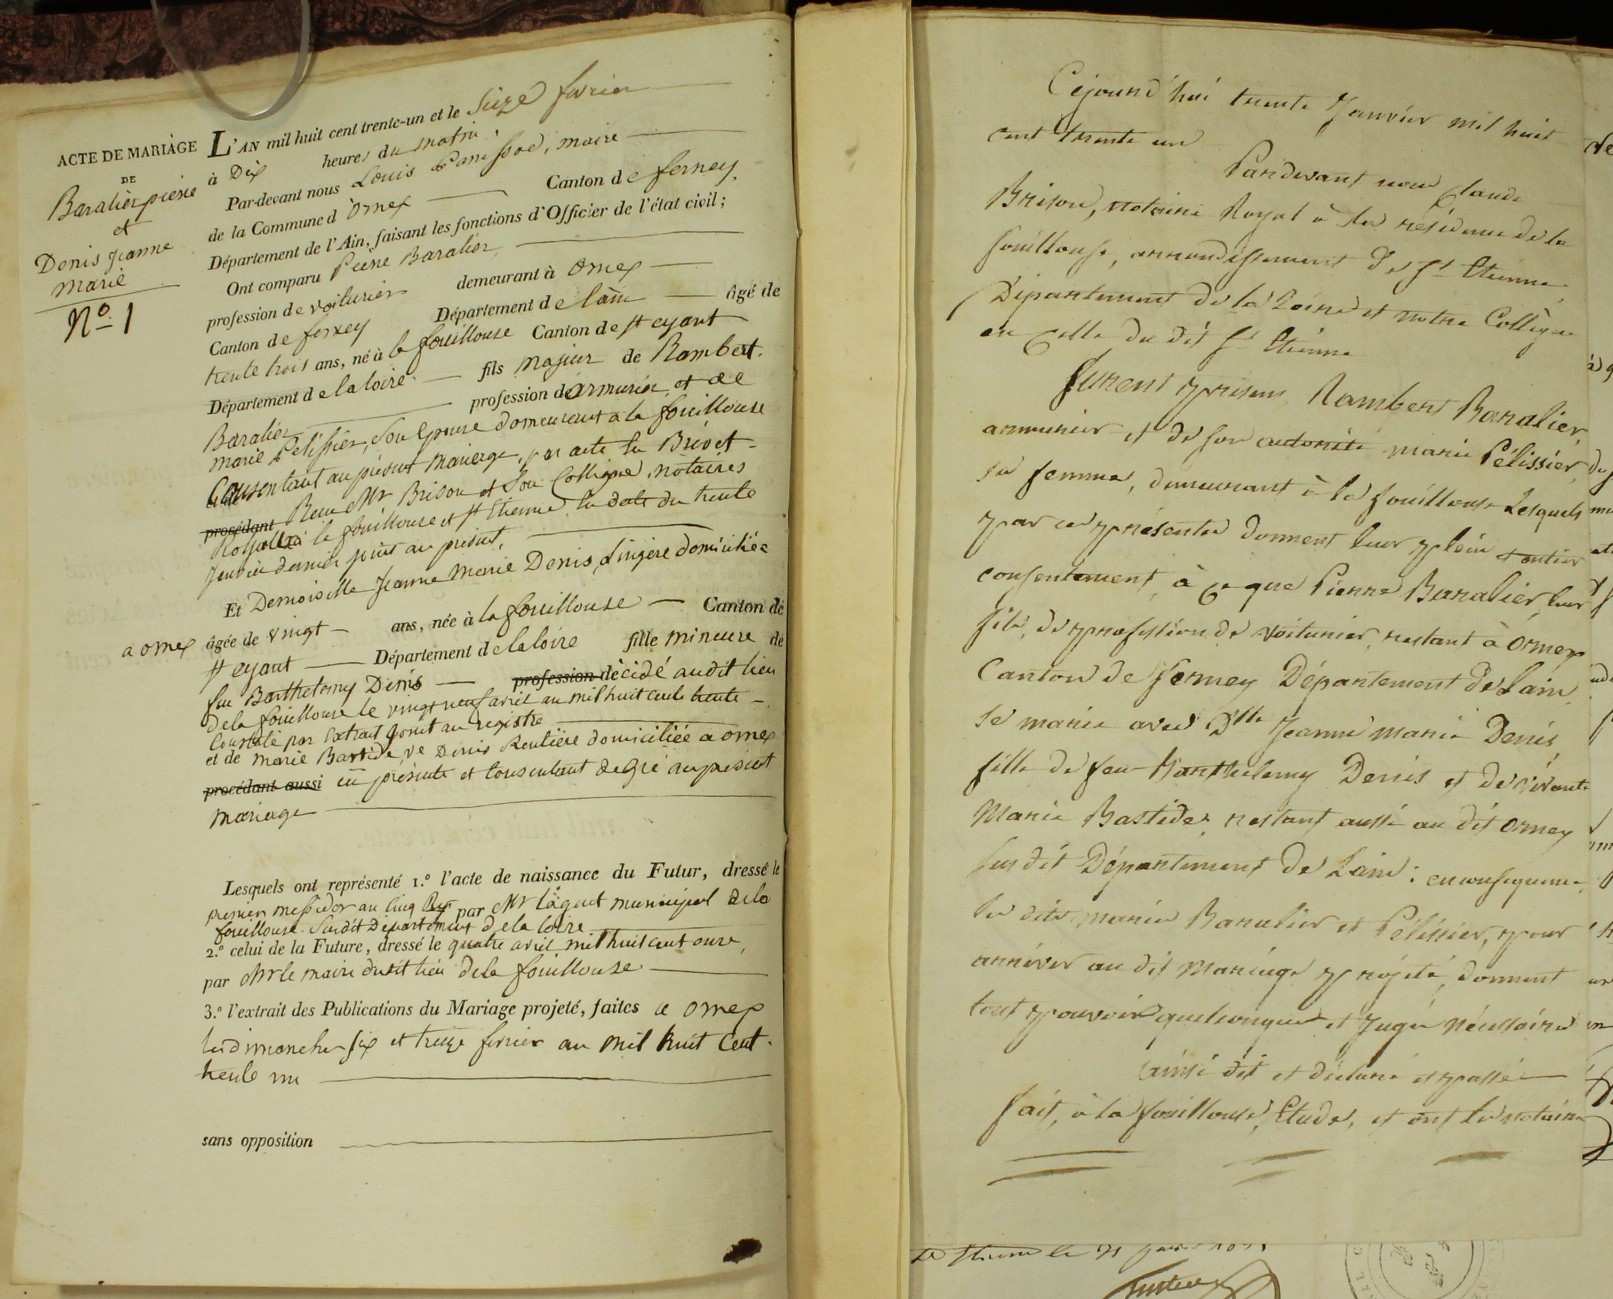 ACTE DE MARIAGE
DE
Baralier pierre
et
Denis Jeanne
Marie
No. 1
L'AN mil huit cent trente-un et le Seize fevrier
à Dix heures du matin.
Par-devant nous Louis Panissod, maire
de la Commune d'ornex Canton de ferney.
Département de l'Ain, faisant les fonctions d'Officier de l'état civil;
Ont comparu Pierre Baralier,
profession de voiturier demeurant à Ornex
Canton de ferney Département de l'ain âgé de
trente trois ans, né à la fouillouse Canton de st eyant
Département de la loire. fils majeur de Rambert.
Baralier profession d'armurier, et de
marie Pelissier, son Epouse demeurant a la fouillouse
Consentant au présent mariage, par acte en Brevet
procédant Recu Mr Brison et Son Collegue, notaires
Royaux à la fouillouse et st Etienne, en date du trente
janvier dernier joint au présent.
Et Demoiselle Jeanne Marie Denis, Lingère domiciliée
a ornex âgée de vingt ans, née à la fouillouse Canton de
st eyant Département de la loire fille mineure de
feu Barthelemy Denis profession décidé audit lieu
de la fouillouse le vingt neuf avril an mil huit cent trente
Constaté par Extrait joint au registre
et de Marie Bastide, ve Denis Rentière domiciliée a ornex
procédant aussi ici présente et consentant de gré au présent
mariage
Lesquels ont représenté 1.º l'acte de naissance du Futur, dressé le
premier messidor an cinq par Mr l'agent municipal de la
fouillouse Susdit Département de la loire
2.º celui de la Future, dressé le quatre avril mil huit cent onze,
par Mr le maire dudit lieu de la fouillouse
3.º l'extrait des Publications du Mariage projeté, faites a ornex
les dimanches six et treize fevrier an mil huit Cent
trente un
sans opposition
Cejourd'hui trente Janvier mil huit
cent trente un
Pardevant nous Claude
Brison, notaire Royal à la résidence de la
fouillouse, arrondissement de St Etienne
Département de la Loire et notre Collègue
en celle du dit St Etienne
furent présens Rambert Baralier
armurier et de son autorité marie Pélissier,
sa femme, demeurant à la fouillouse Lesquels
par ces présentes donnent leur plein et entier
consentement, à ce que Pierre Baralier, leur
fils, de profession de voiturier, restant à Ornex
Canton de ferney Département de Lain,
se marie avec Dlle Jeanne marie Denis,
fille de feu Barthelemy Denis et de vivante
Marie Bastide, restant aussi au dit Ornex
susdit Département de Lain: en conséquence
les dits mariés Baralier et Pélissier, pour
arriver au dit mariage projeté, donnent
tout pouvoir quelconque et jugé nécessaire
ainsi dit et déclaré et passé
fait, à la fouillouse, Etude, et ont les notaires
St Etienne le 31